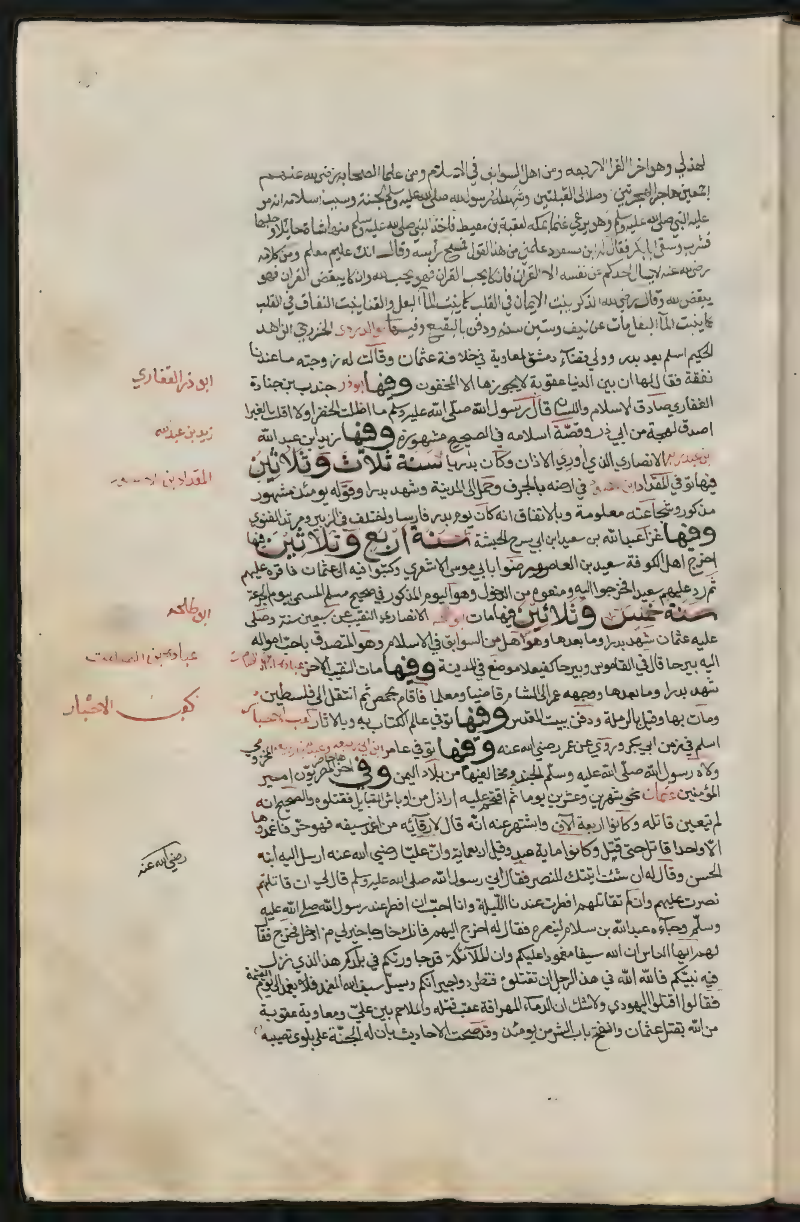 لهذلي وهو اخر القرا الاربعه ومن اهل السوابق في الاسلام ومن علما الصحابه رضي الله عنهم
اجمعين هاجر الهجرتين وصلا الى القبلتين وشهد له رسول الله صلى الله عليه وسلم بالجنة وسبب اسلامه انه مر
عليه النبي صلى الله عليه وسلم وهو يرعى غنما بمكه لعقبة بن معيط فاخذ النبي صلى الله عليه وسلم منها شاة حايلا وحلبها
فشرب وسقى ابا بكر فقال له ابن مسعود علمني من هذا القول فمسح راسه وقال انك عليم معلم ومن كلامه
رضي الله عنه لا يسال احدكم عن نفسه الا القران فان كان يحب القران فهو يحب الله وان كان يبغض القران فهو
يبغض الله وقال رضي الله الذكر ينبت الايمان في القلب كما ينبت الما البقل والغنا ينبت النفاق في القلب
كما ينبت الما البقل مات عن نيف وستين سنه ودفن بالبقيع وفيها ابو الدردى الخزرجي الزاهد
الحكيم اسلم بعد بدر وولي قضاء دمشق لمعاوية في خلافة عثمان وقالت له زوجته ما عندنا
نفقة فقال لها ان بين الدنيا عقوبة لا يجوزها الا المخفون وفيها ابوذر جندب بن جنادة
الغفاري صادق الاسلام واللسان قال رسول الله صلى الله عليه وسلم ما اظلت الخضرا ولا اقلت الغبرا
اصدق لهجة من ابي ذر وقصة اسلامه في الصحيح مشهوره وفيها زيد ابن عبد الله
بن عبد ربه الانصاري الذي اوري الاذان وكان بدريا سنة ثلاث وثلاثين
فيها توفي المقداد ابن الاسود في ارضه بالجرف وحمل الى المدينة وشهد بدرا وقوله يومئذ مشهور
مذكور وشجاعته معلومة وبالاتفاق انه كان يوم بدر فارسا واختلف في الزبير ومرثد الغنوي
وفيها غزا عبد الله بن سعد ابن ابي سرح الحبشة سنة اربع وثلاثين فيها
اخرج اهل الكوفة سعيد بن العاص ورضوا بابي موسى الاشعري وكتبوا فيه الى عثمان فاقره عليهم
ثم رد عليهم سعيد الخرجوا اليه ومنعوه من الدخول وهو اليوم المذكور في صحيح مسلم المسمى بيوم الجرعة
سنة خمس وثلاثين فيها مات ابو طلحه الانصاري النقيب عن سبعين سنة وصلى
عليه عثمان شهد بدرا وما بعدها وهو اهل من السوابق في الاسلام وهو المتصدق باحب امواله
اليه بيرحا قال في القاموس وبيرحا كفيعلا موضع في المدينة وفيها مات النقيب الاخر عبادة ابن الصامت
شهد بدرا وما بعدها ووجهه عمر الى الشام قاضيا ومعلما فاقام بحمص ثم انتقل الى فلسطين
ومات بها وقيل بالرملة ودفن ببيت المقدس وفيها توفي عالم الكتاب به وبالاثار كعب الاحبار
اسلم في زمن ابي بكر وروى عن عمر رضي الله عنه وفيها توفي عامر ابن ابي ربيعه
ولاه رسول الله صلى الله عليه وسلم الجند ومخاليفها من بلاد اليمن وفي امير
المؤمنين عثمان نحو شهرين وعشرين يوما ثم اقتحم عليه اراذل من اوباش القبايل فقتلوه والصحيح انه
لم تعين قاتله وكانوا اربعة الاف واشتهر عنه انه قال لارقايه من اغمد سيفه فهو حر فاغمدوها
الا واحدا قاتل حتى قتل وكانوا ماية عبد وقيل اربعماية وان عليا رضي الله عنه ارسل اليه ابنه
الحسن وقال له ان شئت اتيتك للنصر فقال اني رسول الله صلى الله عليه وسلم قال لي ان قاتلتهم
نصرت عليهم وان لم تقاتلهم افطرت عندنا الليلة وانا احب ان افطر عند رسول الله صلى الله عليه
وسلم وجاءه عبد الله بن سلام لينصره فقال له اخرج اليهم فانك خارجا خير لي من داخل فخرج فقا
لهم ايها الناس ان لله سيفا مغمودا عليكم وان الملائكة قد جاورتكم في بلدكم هذا الذي نزل
فيه نبيكم فالله الله في هذا الرجل ان تقتلوه فتطردوا جيرانكم ويسل سيف الله المغمد فلا يغمد الى يوم القيمة
فقالوا اقتلوا اليهودي ولا شك ان الدماء المهراقة عقب قتله والملاحم بين علي ومعاوية عقوبة
من الله بقتل عثمان وانفتح باب الشر من يومئذ وقد صحت الاحاديث بان له الجنة على بلوى تصيبه
ابو ذر الغفاري
زيد بن عبد الله
المقداد بن الاسود
ابو طلحه
عباده بن الصامت
كعب الاحبار
رضي الله عنه